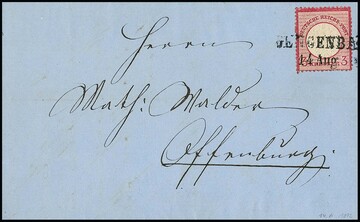 DEUTSCHE REICHS-POST
GENGENBA
14 Aug.
3
Herrn
Math: Walder
Offenburg.